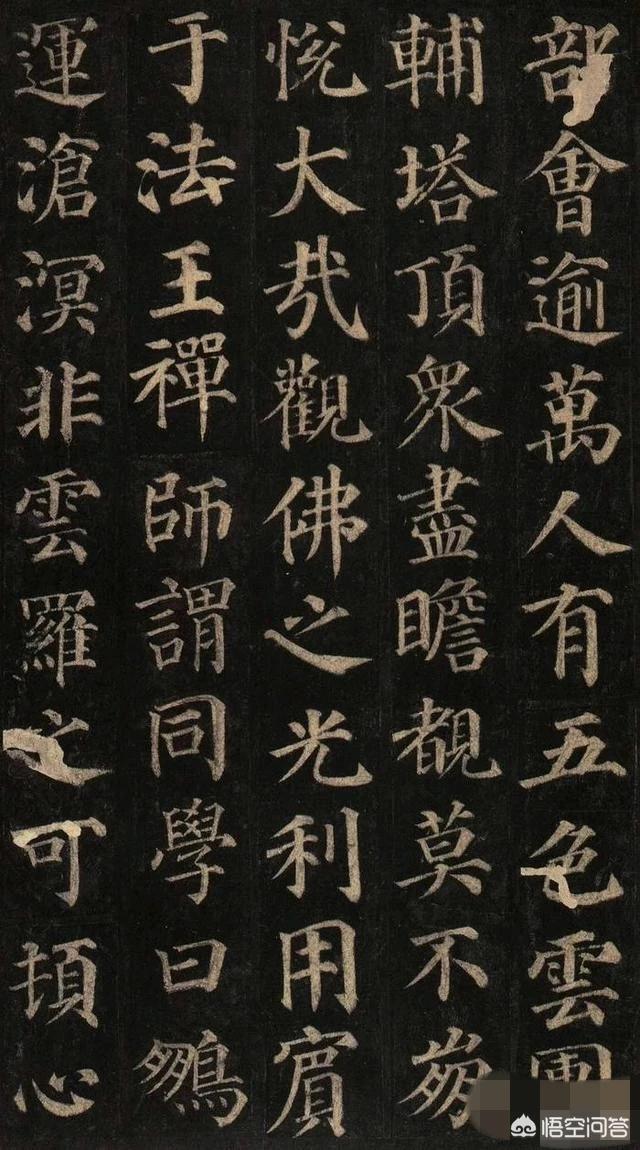 部會逾萬人有五色雲團
輔塔頂衆盡瞻覩莫不崩
悅大哉觀佛之光利用賓
于法王禪師謂同學曰鵬
運滄溟非雲羅之可頓心
悟空问答